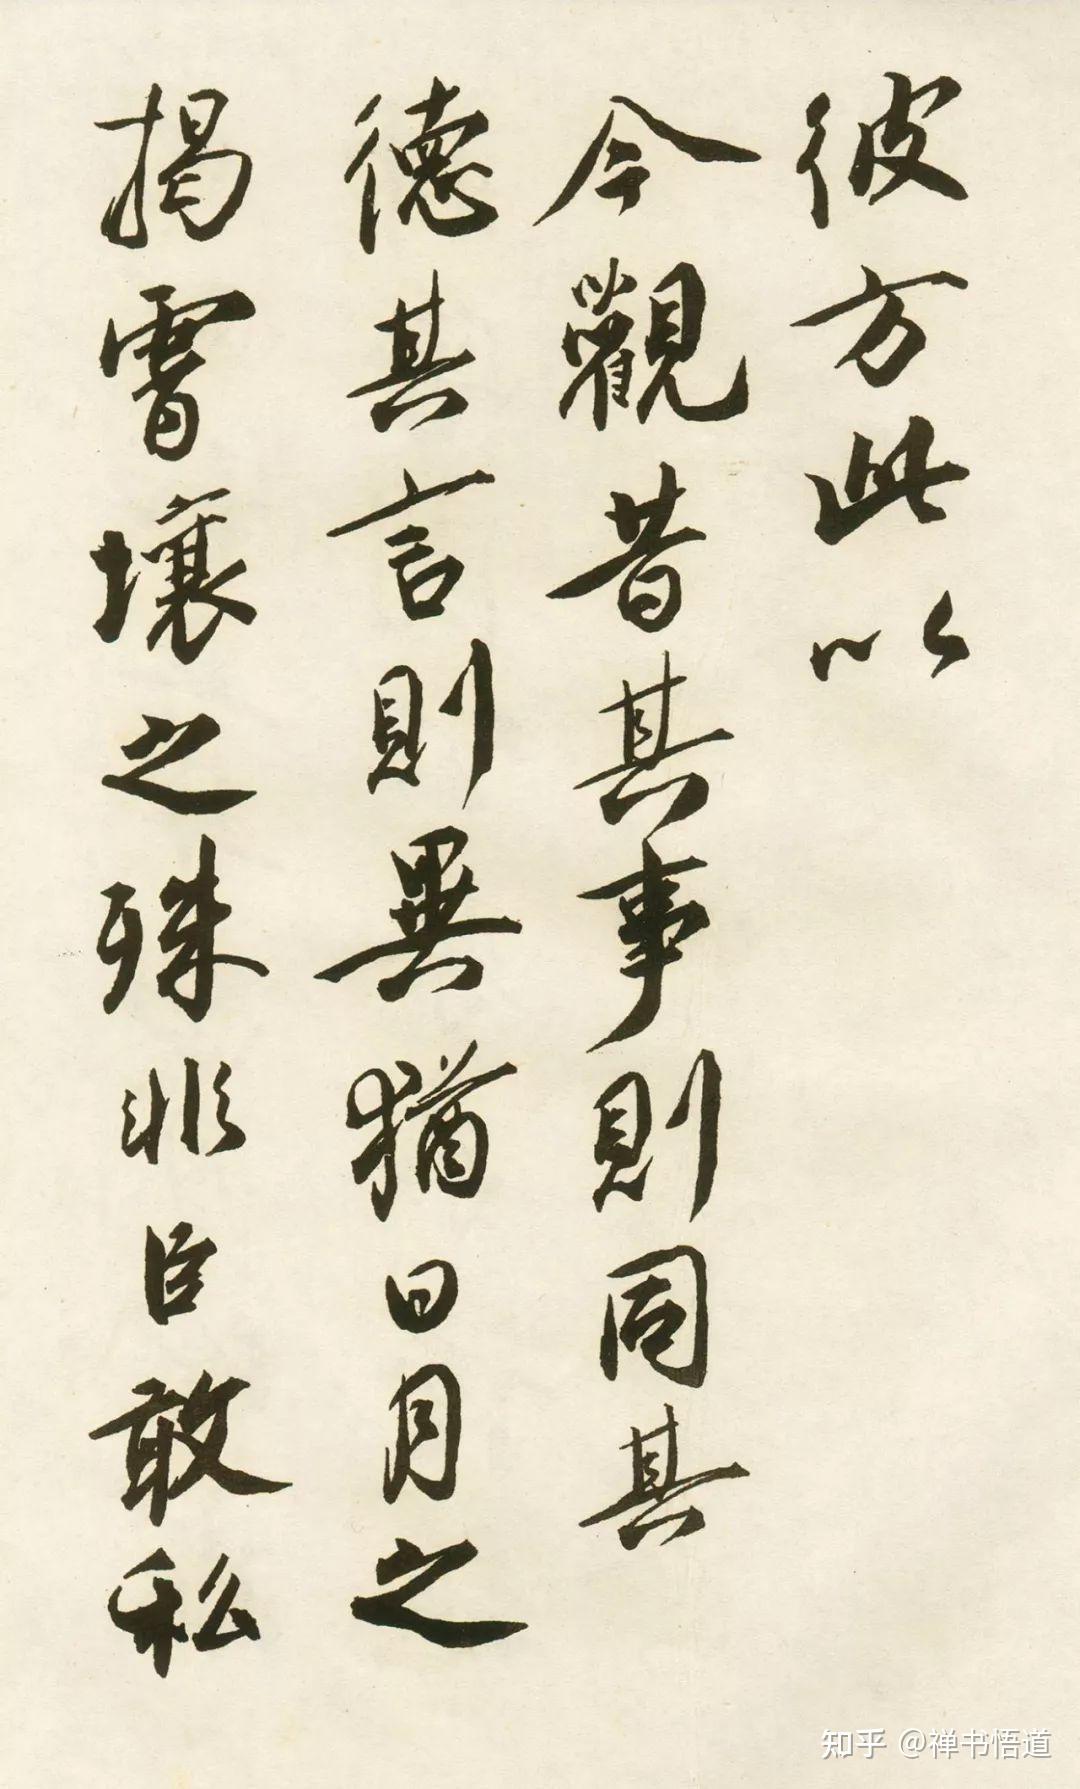 彼方此以
今觀昔其事則同其
德其言則異猶日月之
揭霄壤之殊非臣敢私
知乎 @禅书悟道